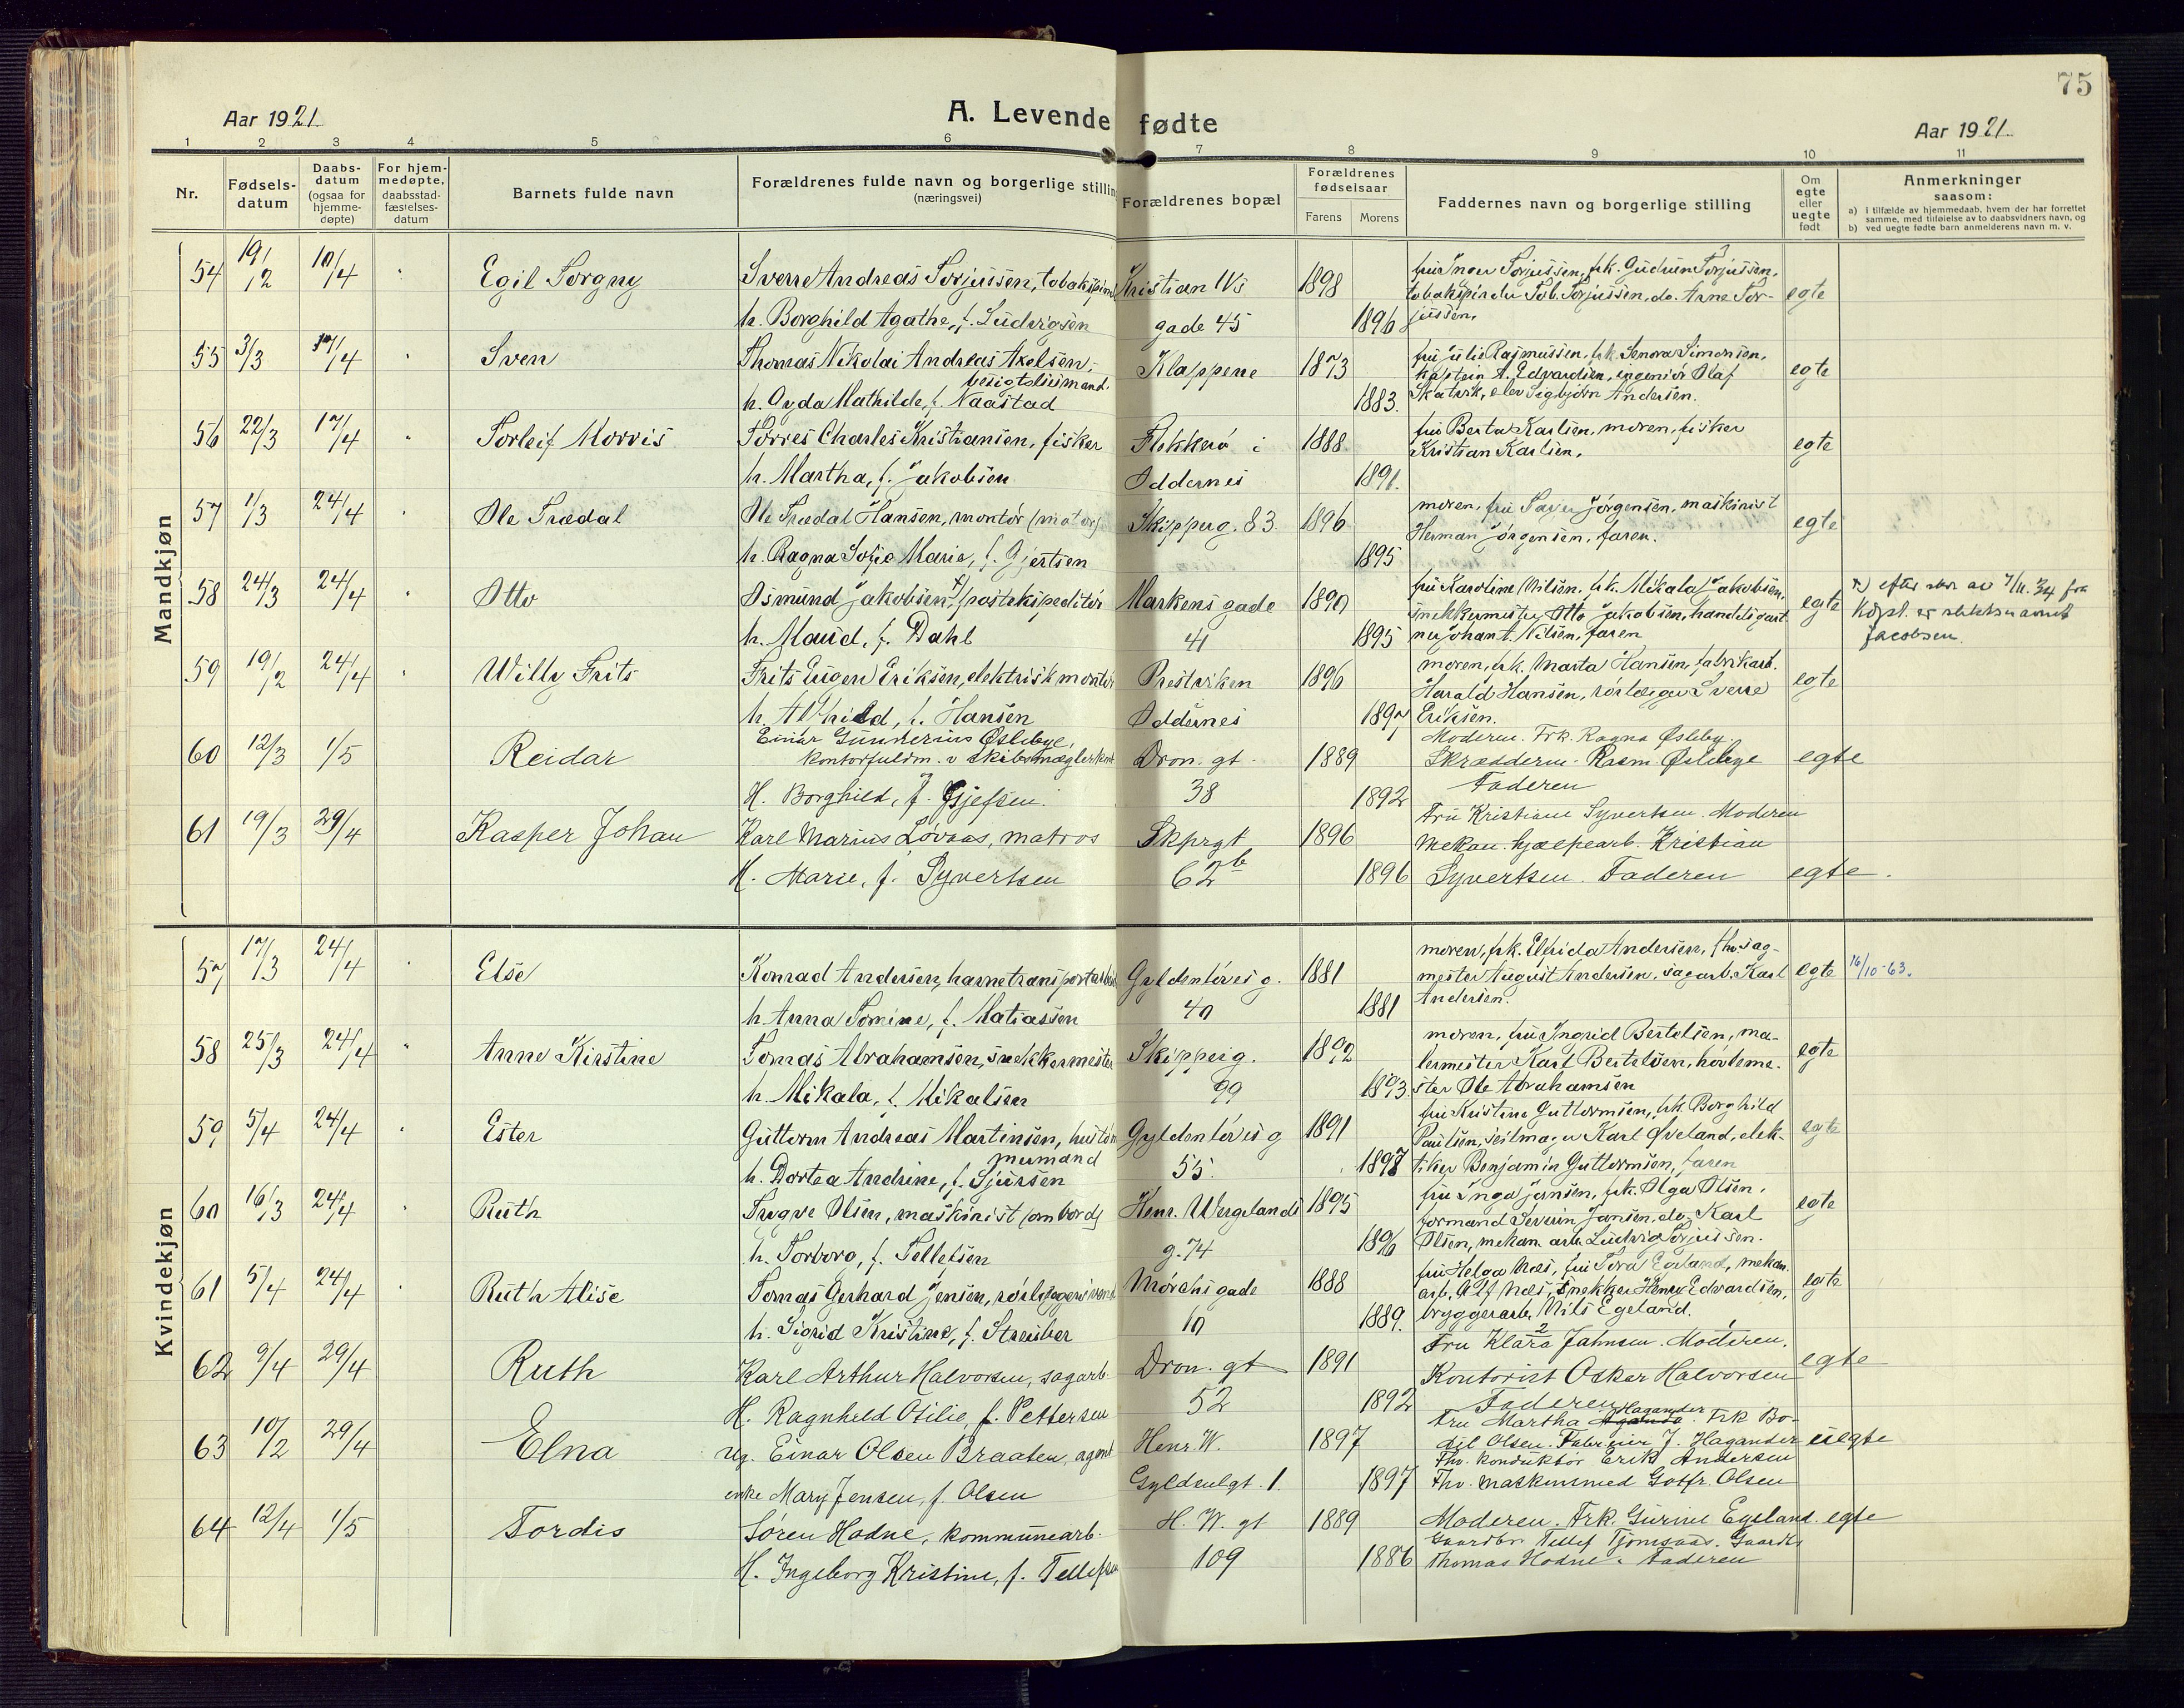 75
Aar 1921
A. Levende fødte
Aar 1921
1 2 3 4 5 6 7 8 9 10 11
Nr.
Fødsels-
datum
Daabs-
datum
(ogsaa for
hjemme-
døpte)
For hjem-
medøpte,
daabsstad-
fæstelses-
datum
Barnets fulde navn
Forældrenes fulde navn og borgerlige stilling
(næringsvei)
Forældrenes bopæl
Forældrenes
fødselsaar
Farens Morens
Faddernes navn og borgerlige stilling
Om
egte
eller
uegte
født
Anmerkninger
saasom:
a) i tilfælde av hjemmedaab, hvem der har forrettet
samme, med tilføielse av to daabsvidners navn, og
b) ved uegte fødte barn anmelderens navn m. v.
Mandkjøn
54 19/2 10/4 Egil Torgny Sverre Andreas Torjussen, tobakspind Kristian IVs 1898 fru Inger Torjussen, frk. Gudrun Torjussen, egte
tobakspinder Tob. Torjussen, do. Arne Tor-
h. Borghild Agathe, f. Ludvigsen gade 45 1896 jussen.
55 3/3 17/4 Sven Thomas Nikolai Andreas Axelsen, Klappene 1873 fru Julie Rasmussen, frk. Senora Simonsen, egte
besigtelsesmand. kaptein A. Edvardsen, ingeniör Olaf
h. Ovda Mathilde, f. Naastad 1883. Skatvik, elev Sigbjörn Andersen.
56 22/3 17/4 Torleif Morris Torres Charles Kristiansen, fisker Flekkerö i 1888 fru Berta Karlsen, moren, fisker egte
Kristian Karlsen.
h. Martha, f. Jakobsen Oddernes 1891.
57 1/3 24/4 Ole Trædal Ole Trædal Hansen, montör (motor) Skipperg. 83 1896 moren, fru Jörgensen, maskinist egte
Herman Jörgensen, faren.
h. Ragna Sofie Marie, f. Gjertsen 1895
58 24/3 24/4 Otto Osmund Jakobsen, x) postekspeditör Markens gade 1890 fru Karoline Nilsen, frk. Mikala Jakobsen, egte x) efter skr av 7/11.34 fra
snekkermester Otto Jakobsen, handelsgart
h. Maud, f. Dahl 41 1895 ner Johan t. Nilsen, faren er slektsnavnet
Jacobsen.
59 19/2 24/4 Willy Frits Frits Eugen Eriksen, elektrisk montör Prestviken 1896 moren, frk. Marta Hansen, fabrikarb. egte
Harald Hansen, rörlægger Sverre
h. Alfhild, f. Hansen Oddernes 1897 Eriksen.
60 12/3 1/5 Reidar Einar Gunnerius Øslebye, Dron. gt. 1889 Moderen. Frk. Ragna Øsleby. egte
kontorfuldm. v skibsmæglerkont Skrædderm. Rasm. Øslebye
H. Borghild, f. Gjefsen. 38 1892 Faderen
61 19/3 29/4 Kasper Johan Karl Marius Lövaas, matros Skprgt 1896 Fru Kristiane Syvertsen. Moderen
Mekan. hjælpearb. Kristian
H. Marie, f. Syvertsen 62b 1896 Syvertsen. Faderen egte.
Kvindekjøn
57 17/3 24/4 Else Konrad Andersen, havnetransportarbeid Gyldenlöves g. 1881 moren, frk. Elfrida Andersen, fhv. sag- egte 16/10-63.
mester August Andersen, sagarb. Karl
h Anna Tomine, f. Matiassen 40 1881 Andersen.
58 25/3 24/4 Anne Kirstine Tomas Abrahamsen, snekkermester Skipperg. 1892 moren, fru Ingrid Bertelsen, ma- egte
lermester Karl Bertelsen, hovleme-
h. Mikala, f. Mikalsen 99 1893 ster Ole Abrahamsen
59 5/4 24/4 Ester Guttorm Andreas Martinsen, hustöm Gyldenlöves g 1891 fru Kristine Guttormsen, frk. Borghild egte
mermand Paulsen, seilmager Karl Øveland, elek-
h. Dortea Andrine, f. Sjursen 55. 1897 triker Benjamin Guttormsen, faren
60 16/3 24/4 Ruth Trygve Olsen, maskinist (ombord) Henr. Wergelands 1895 fru Inga Jansen, frk. Olga Olsen, egte
formand Severin Jansen, do. Karl
h. Torborg, f. Tellefsen g. 74 1896 Olsen, mekan. arb. Ludvig Torjussen.
61 5/4 24/4 Ruth Alise Tomas Gerhard Jensen, rörlæggersvend Mörchs gade 1888 fru Helga Næs, fru Tora Egeland, mekan. egte
arb. Alf Næs, snekker Henry Edvardsen,
h. Sigrid Kristine, f. Streiber 10 1889. bryggerarb. Nils Egeland.
62 9/4 29/4 Ruth Karl Arthur Halvorsen, sagarb. Dron. gt 1891 Fru Klara Jahnsen. Moderen. egte
Kontorist Oskar Halvorsen
H. Ragnhild Otilie, f. Pettersen 52 1892 Faderen
63 10/2 29/4 Elna Ug. Einar Olsen Braaten, agent Henr. W. 1897 Fru Martha Hagander. Frk Bo- uegte
dil Olsen. J. Hagander
Fhv. konduktör Erik Andersen
enke Mary Jensen, f. Olsen Gyldenlgt. 1. 1897 Fhv. maskinmed Gotfr. Olsen
64 12/4 1/5 Tordis Sören Hodne, kommunearb. H. W. gt 1889 Moderen. Frk. Gurine Egeland. egte
Gaardbr. Tellef Tjomsaas. Gaardbr
H. Ingeborg Kristine, f. Tellefsen 109 1886 Thomas Hodne. Faderen